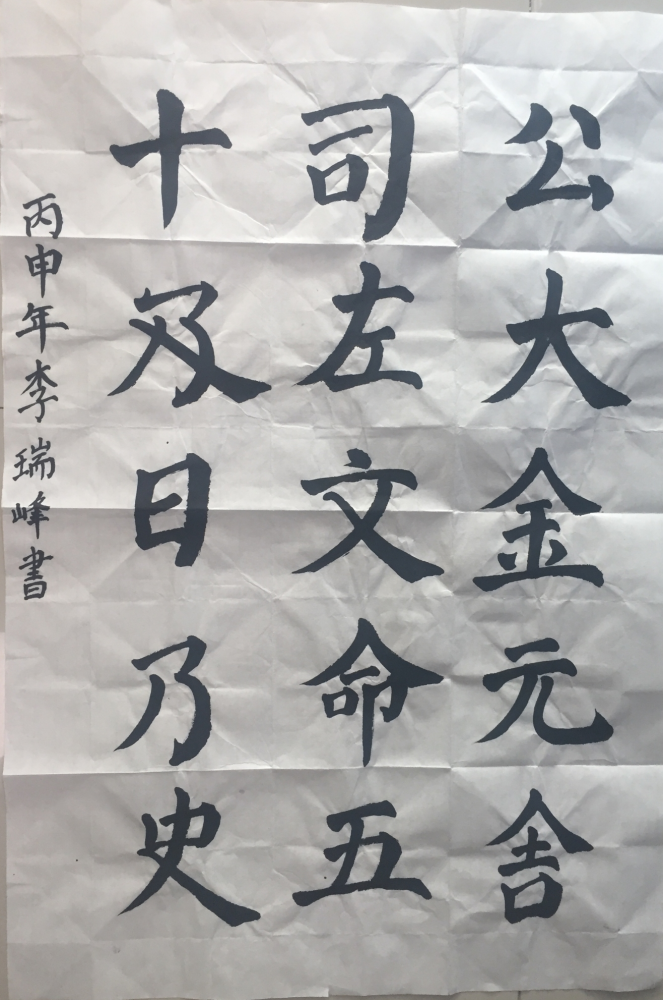 公大金元舍
司左文命五
十及日乃史
丙申年李瑞峰書